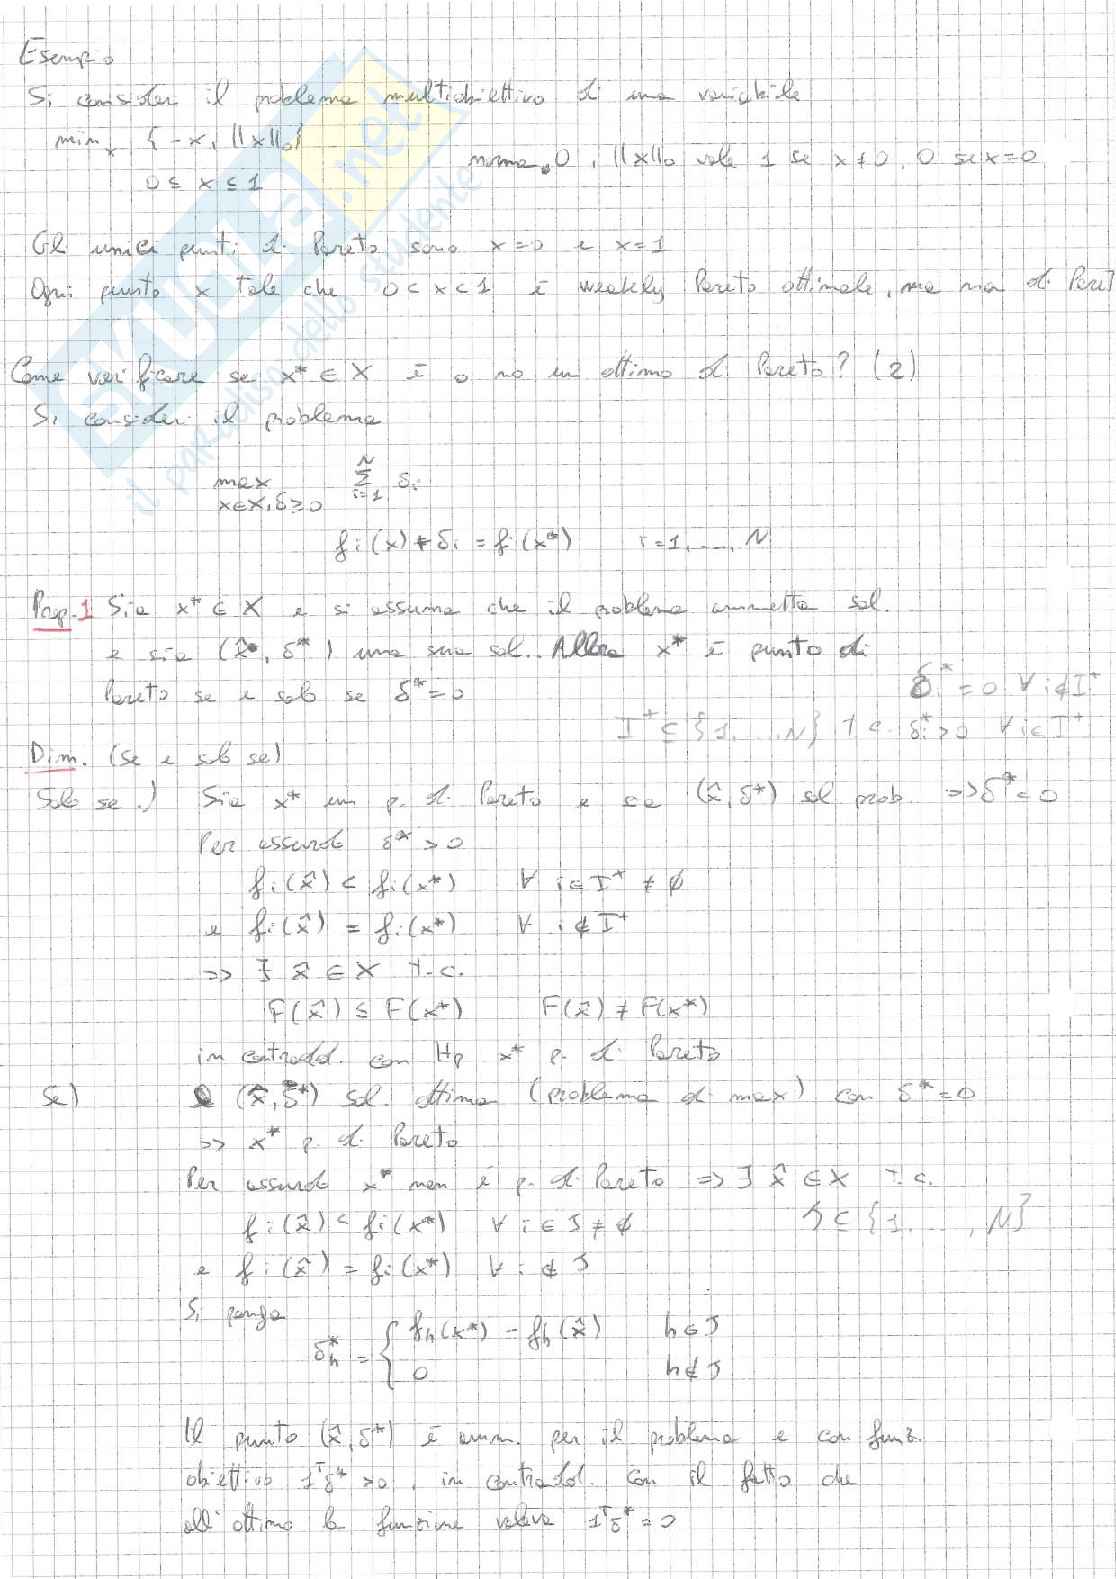 Esempio
Si consideri il problema multiobiettivo di una variabile
min_x { -x, ||x||₀ }
norma 0, ||x||₀ vale 1 se x≠0, 0 se x=0
0 ≤ x ≤ 1
Gli unici punti di Pareto sono x=0 e x=1
Ogni punto x tale che 0<x<1 è weakly Pareto ottimale, ma non di Paret
Come verificare se x* ∈ X è o no un ottimo di Pareto? (2)
Si consideri il problema
max Σ_{i=1}^{N} δi
x∈X, δ≥0
fi(x) + δi = fi(x*) i=1,...,N
Prop.1 Sia x* ∈ X e si assuma che il problema ammetta sol.
e sia (x̂, δ*) una sua sol. Allora x* è punto di
Pareto se e solo se δ*=0
δi* = 0 ∀ i∉I⁺
I⁺ ⊆ {1,...,N} t.c. δi*>0 ∀ i∈I⁺
Dim. (se e solo se)
Solo se.) Sia x* un p. di Pareto e sia (x̂, δ*) sol prob. => δ*=0
Per assurdo δ* > 0
fi(x̂) < fi(x*) ∀ i∈I⁺ ≠ ∅
e fi(x̂) = fi(x*) ∀ i∉I⁺
=> ∃ x̂ ∈ X t.c.
F(x̂) ≤ F(x*) F(x̂) ≠ F(x*)
in contradd. con Hp x* p. di Pareto
Se) (x̂, δ*) sol. ottima (problema di max) con δ*=0
=> x* p. di Pareto
Per assurdo x* non è p. di Pareto => ∃ x̂ ∈ X t.c.
fi(x̂) < fi(x*) ∀ i ∈ J ≠ ∅ J ⊂ {1,...,N}
e fi(x̂) = fi(x*) ∀ i ∉ J
Si ponga
δh* = { fh(x*) - fh(x̂) h∈J
0 h∉J
Il punto (x̂, δ*) è amm. per il problema e con funz.
obiettivo 1ᵀδ* > 0, in contradd. con il fatto che
all'ottimo la funzione valeva 1ᵀδ* = 0
skuola.net
il paradiso dello studente